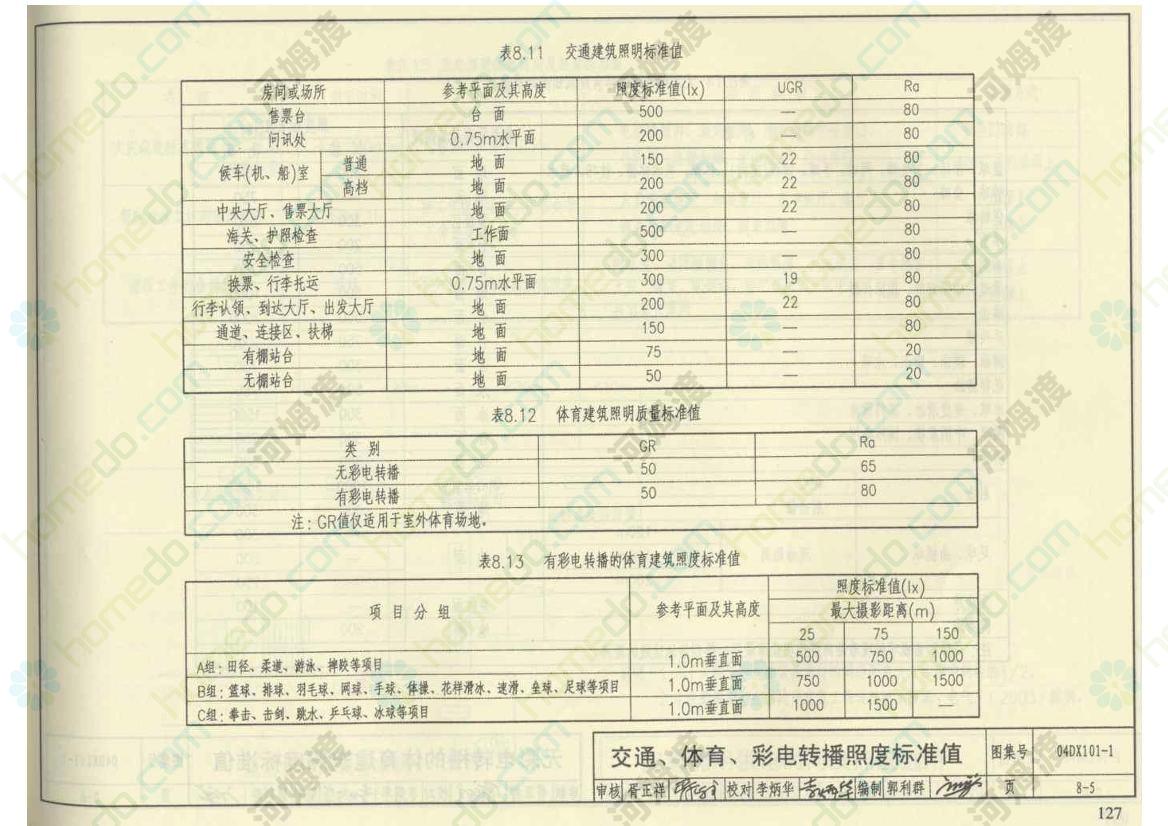 表8.11 交通建筑照明标准值
房间或场所 参考平面及其高度 照度标准值(lx) UGR Ra
售票台 台 面 500 — 80
问讯处 0.75m水平面 200 — 80
候车(机、船)室 普通 地 面 150 22 80
高档 地 面 200 22 80
中央大厅、售票大厅 地 面 200 22 80
海关、护照检查 工作面 500 — 80
安全检查 地 面 300 — 80
换票、行李托运 0.75m水平面 300 19 80
行李认领、到达大厅、出发大厅 地 面 200 22 80
通道、连接区、扶梯 地 面 150 — 80
有棚站台 地 面 75 — 20
无棚站台 地 面 50 — 20
表8.12 体育建筑照明质量标准值
类 别 GR Ra
无彩电转播 50 65
有彩电转播 50 80
注：GR值仅适用于室外体育场地。
表8.13 有彩电转播的体育建筑照度标准值
项 目 分 组 参考平面及其高度 照度标准值(lx)
最大摄影距离(m)
25 75 150
A组：田径、柔道、游泳、摔跤等项目 1.0m垂直面 500 750 1000
B组：篮球、排球、羽毛球、网球、手球、体操、花样滑冰、速滑、垒球、足球等项目 1.0m垂直面 750 1000 1500
C组：拳击、击剑、跳水、乒乓球、冰球等项目 1.0m垂直面 1000 1500 —
交通、体育、彩电转播照度标准值 图集号 04DX101-1
审核 胥正祥 校对 李炳华 李炳华 编制 郭利群 页 8-5
127
河姆渡
homedo.com